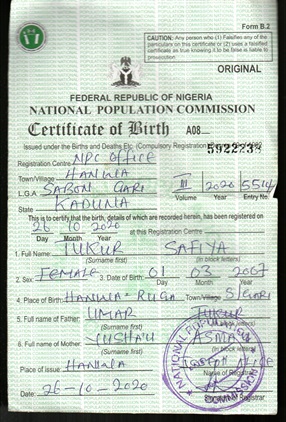 Form B.2
CAUTION: Any person who (1) Falsifies any of the
particulars on this certificate or (2) uses a falsified
certificate as true knowing it to be false is liable to
prosecution.
ORIGINAL
FEDERAL REPUBLIC OF NIGERIA
NATIONAL POPULATION COMMISSION
Certificate of Birth A08
Issued under the Births and Deaths Etc (Compulsory Registration
Registration Centre NPC OFFICE
Town/Village HANWA
L.G.A. SABON GARI III 2020 5514
State KADUNA Volume Year Entry No.
This is to certify that the birth, details of which are recorded herein, has been registered on
26 10 2020 at this Registration Centre
Day Month Year
1. Full Name: TUKUR SAFIYA
(Surname first) (In block letters)
2. Sex: FEMALE 3. Date of Birth: 01 03 2007
Day Month Year
4. Place of Birth: HANWA - RUGA Town/Village S/GARI
5. Full name of Father: UMAR TUKUR
(Surname first) (In block letters)
6. Full name of Mother: YUSHA'U ASMA'U
(Surname first) (In block letters)
Place of issue: HANWA
Date: 26-10-2020 Registrar
NATIONAL POPULATION COMMISSION